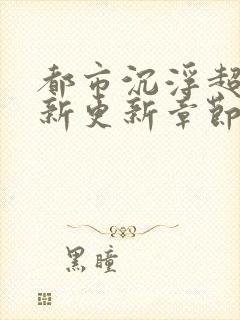 都市沉浮超
新更新章節
黑瞳